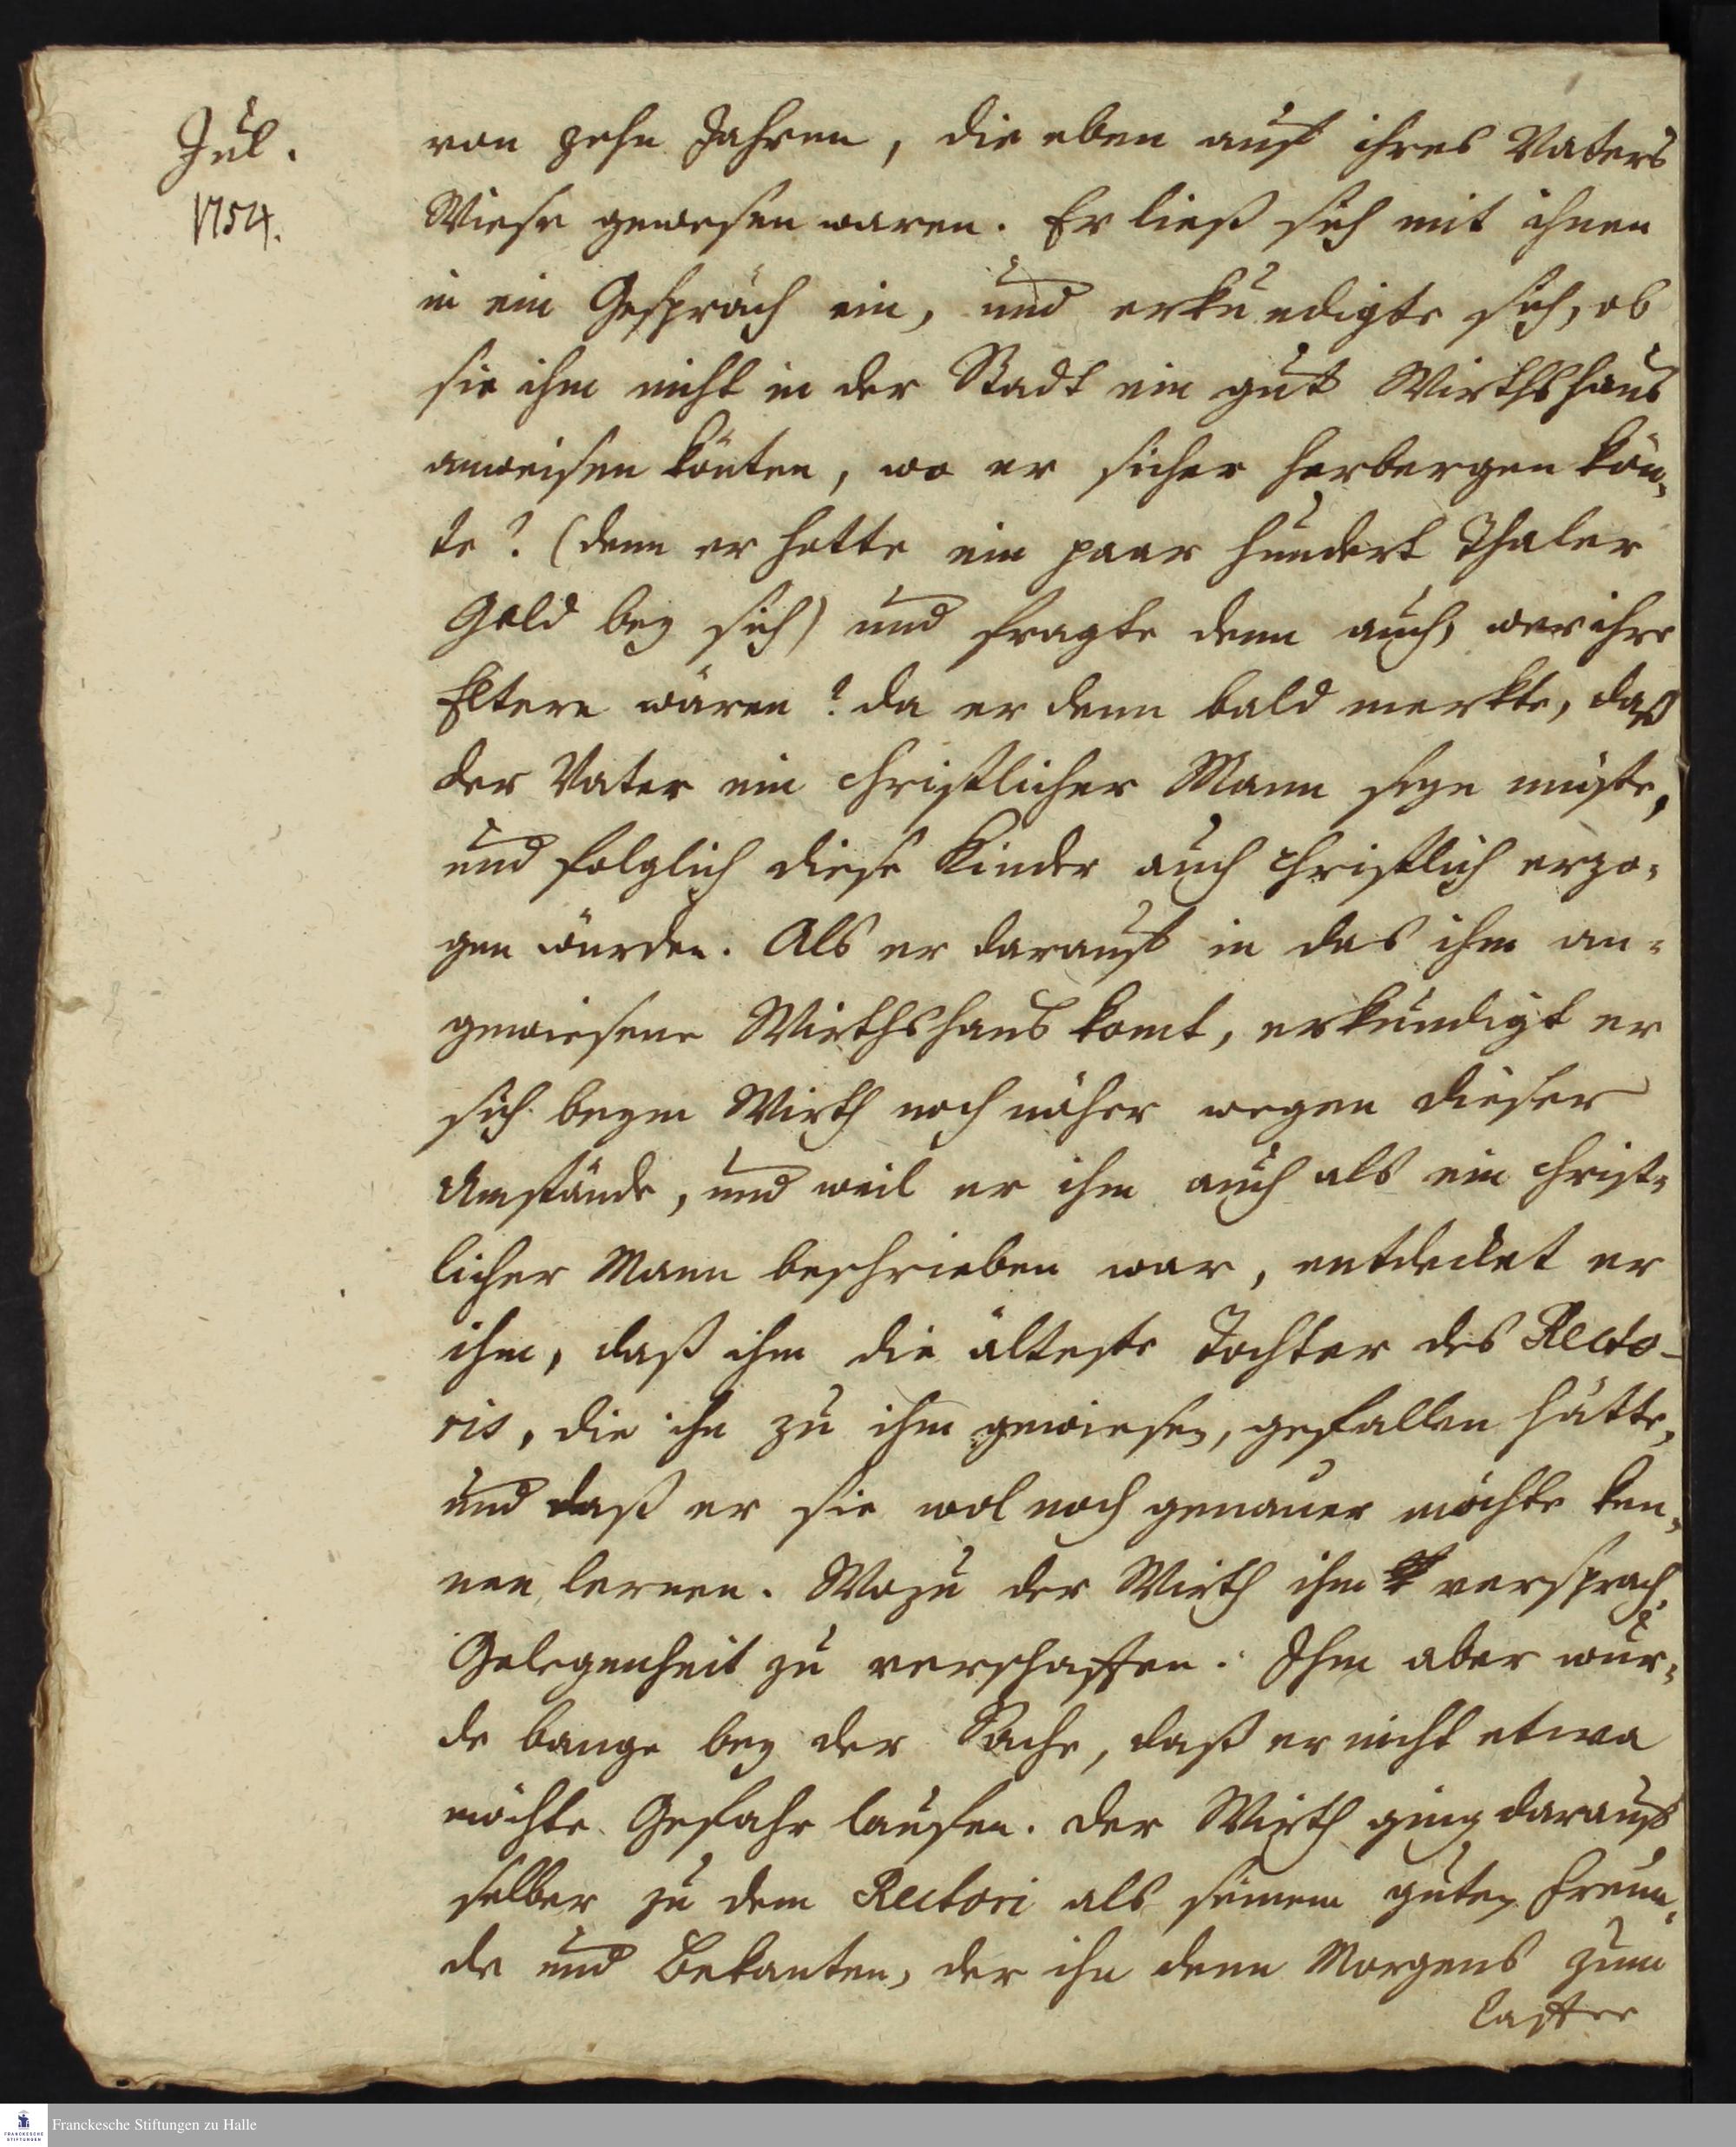 Jul.
1754.
von zehn Jahren, die eben auf ihres Vaters
Wiese gewesen waren. Er ließ sich mit ihnen
in ein Gespräch ein, und erkundigte sich, ob
sie ihm nicht in der Stadt ein gut Wirthshaus
anweisen könten, wo er sicher herbergen kön-
te? (denn er hatte ein paar hundert Thaler
Geld bey sich) und fragte denn auch, wer ihre
Eltern wären? da er denn bald merkte, daß
der Vater ein christlicher Mann seyn müste,
und folglich diese Kinder auch christlich erzo-
gen würden. Als er darauf in das ihm an-
gewiesene Wirthshaus komt, erkundigt er
sich beym Wirth noch näher wegen dieser
Umstände, und weil er ihm auch als ein christ-
licher Mann beschrieben war, entdecket er
ihm, daß ihm die älteste Tochter des Recto-
ris, die ihn zu ihm gewiesen, gefallen hätte,
und daß er sie wol noch genauer möchte ken-
nen lernen. Wozu der Wirth ihm versprach
Gelegenheit zu verschaffen. Ihm aber wur-
de bange bey der Sache, daß er nicht etwa
möchte Gefahr laufen. Der Wirth ging darauf
selber zu dem Rectori als seinem guten Freun-
de und Bekanten, der ihn denn Morgens zum
Caffee
Franckesche Stiftungen zu Halle
FRANCKESCHE
STIFTUNGEN